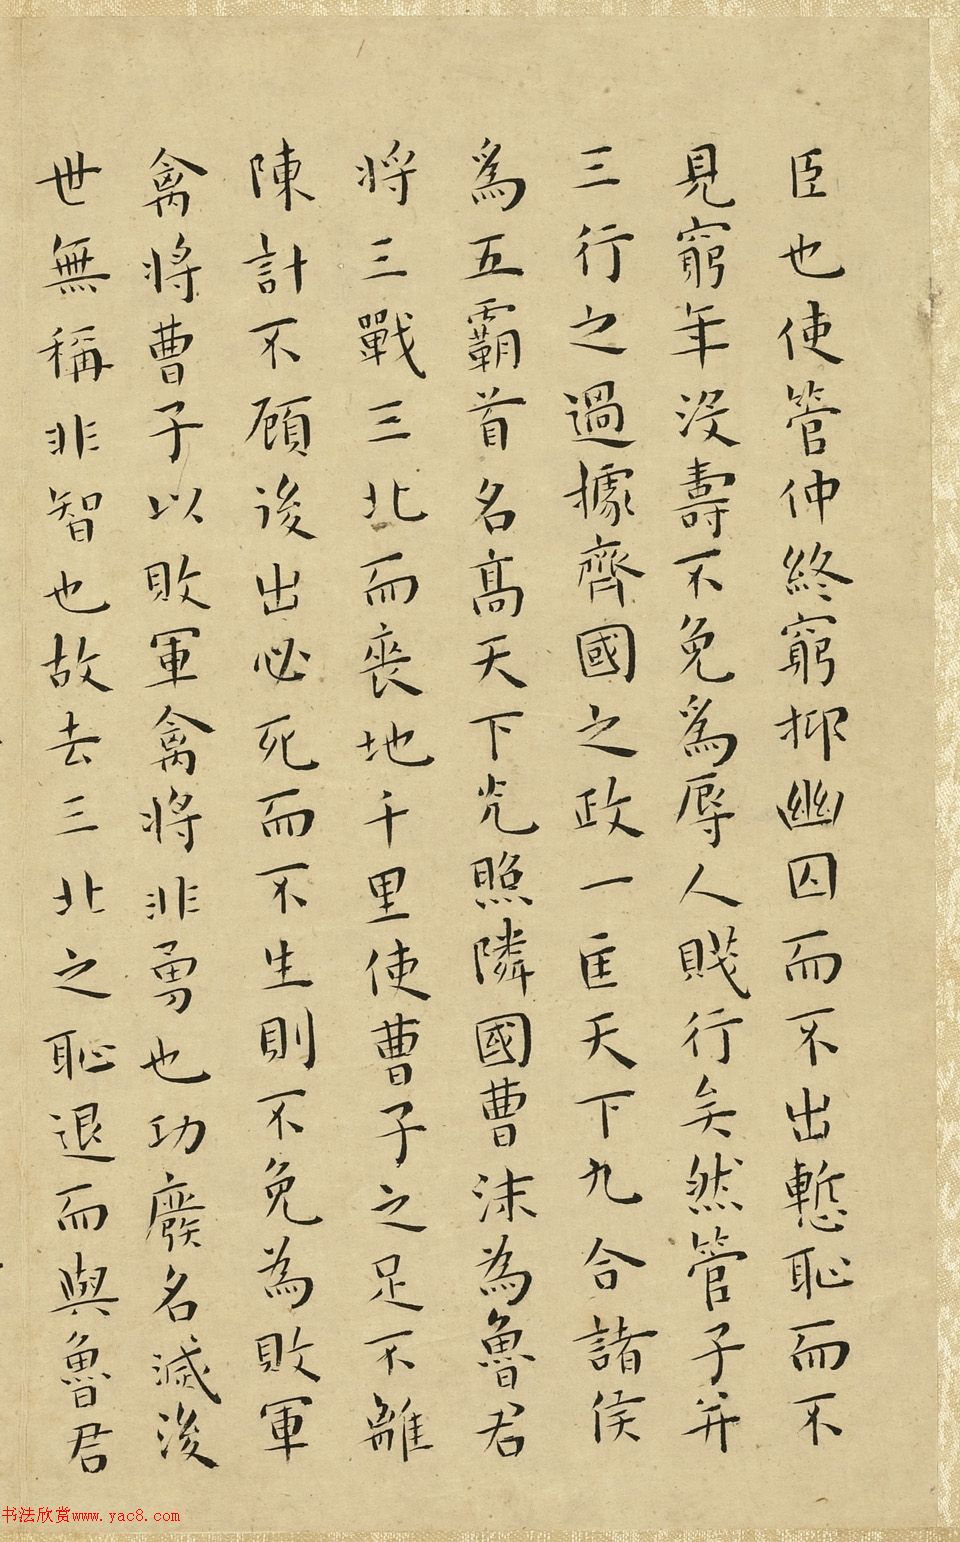 臣也使管仲終窮抑幽囚而不出慙恥而不
見窮年沒壽不免為辱人賤行矣然管子并
三行之過據齊國之政一匡天下九合諸侯
為五霸首名髙天下光照隣國曹沫為魯君
將三戰三北而喪地千里使曹子之足不離
陳計不顧後出必死而不生則不免為敗軍
禽將曹子以敗軍禽將非勇也功廢名滅後
世無稱非智也故去三北之恥退而與魯君
书法欣赏www.yac8.com